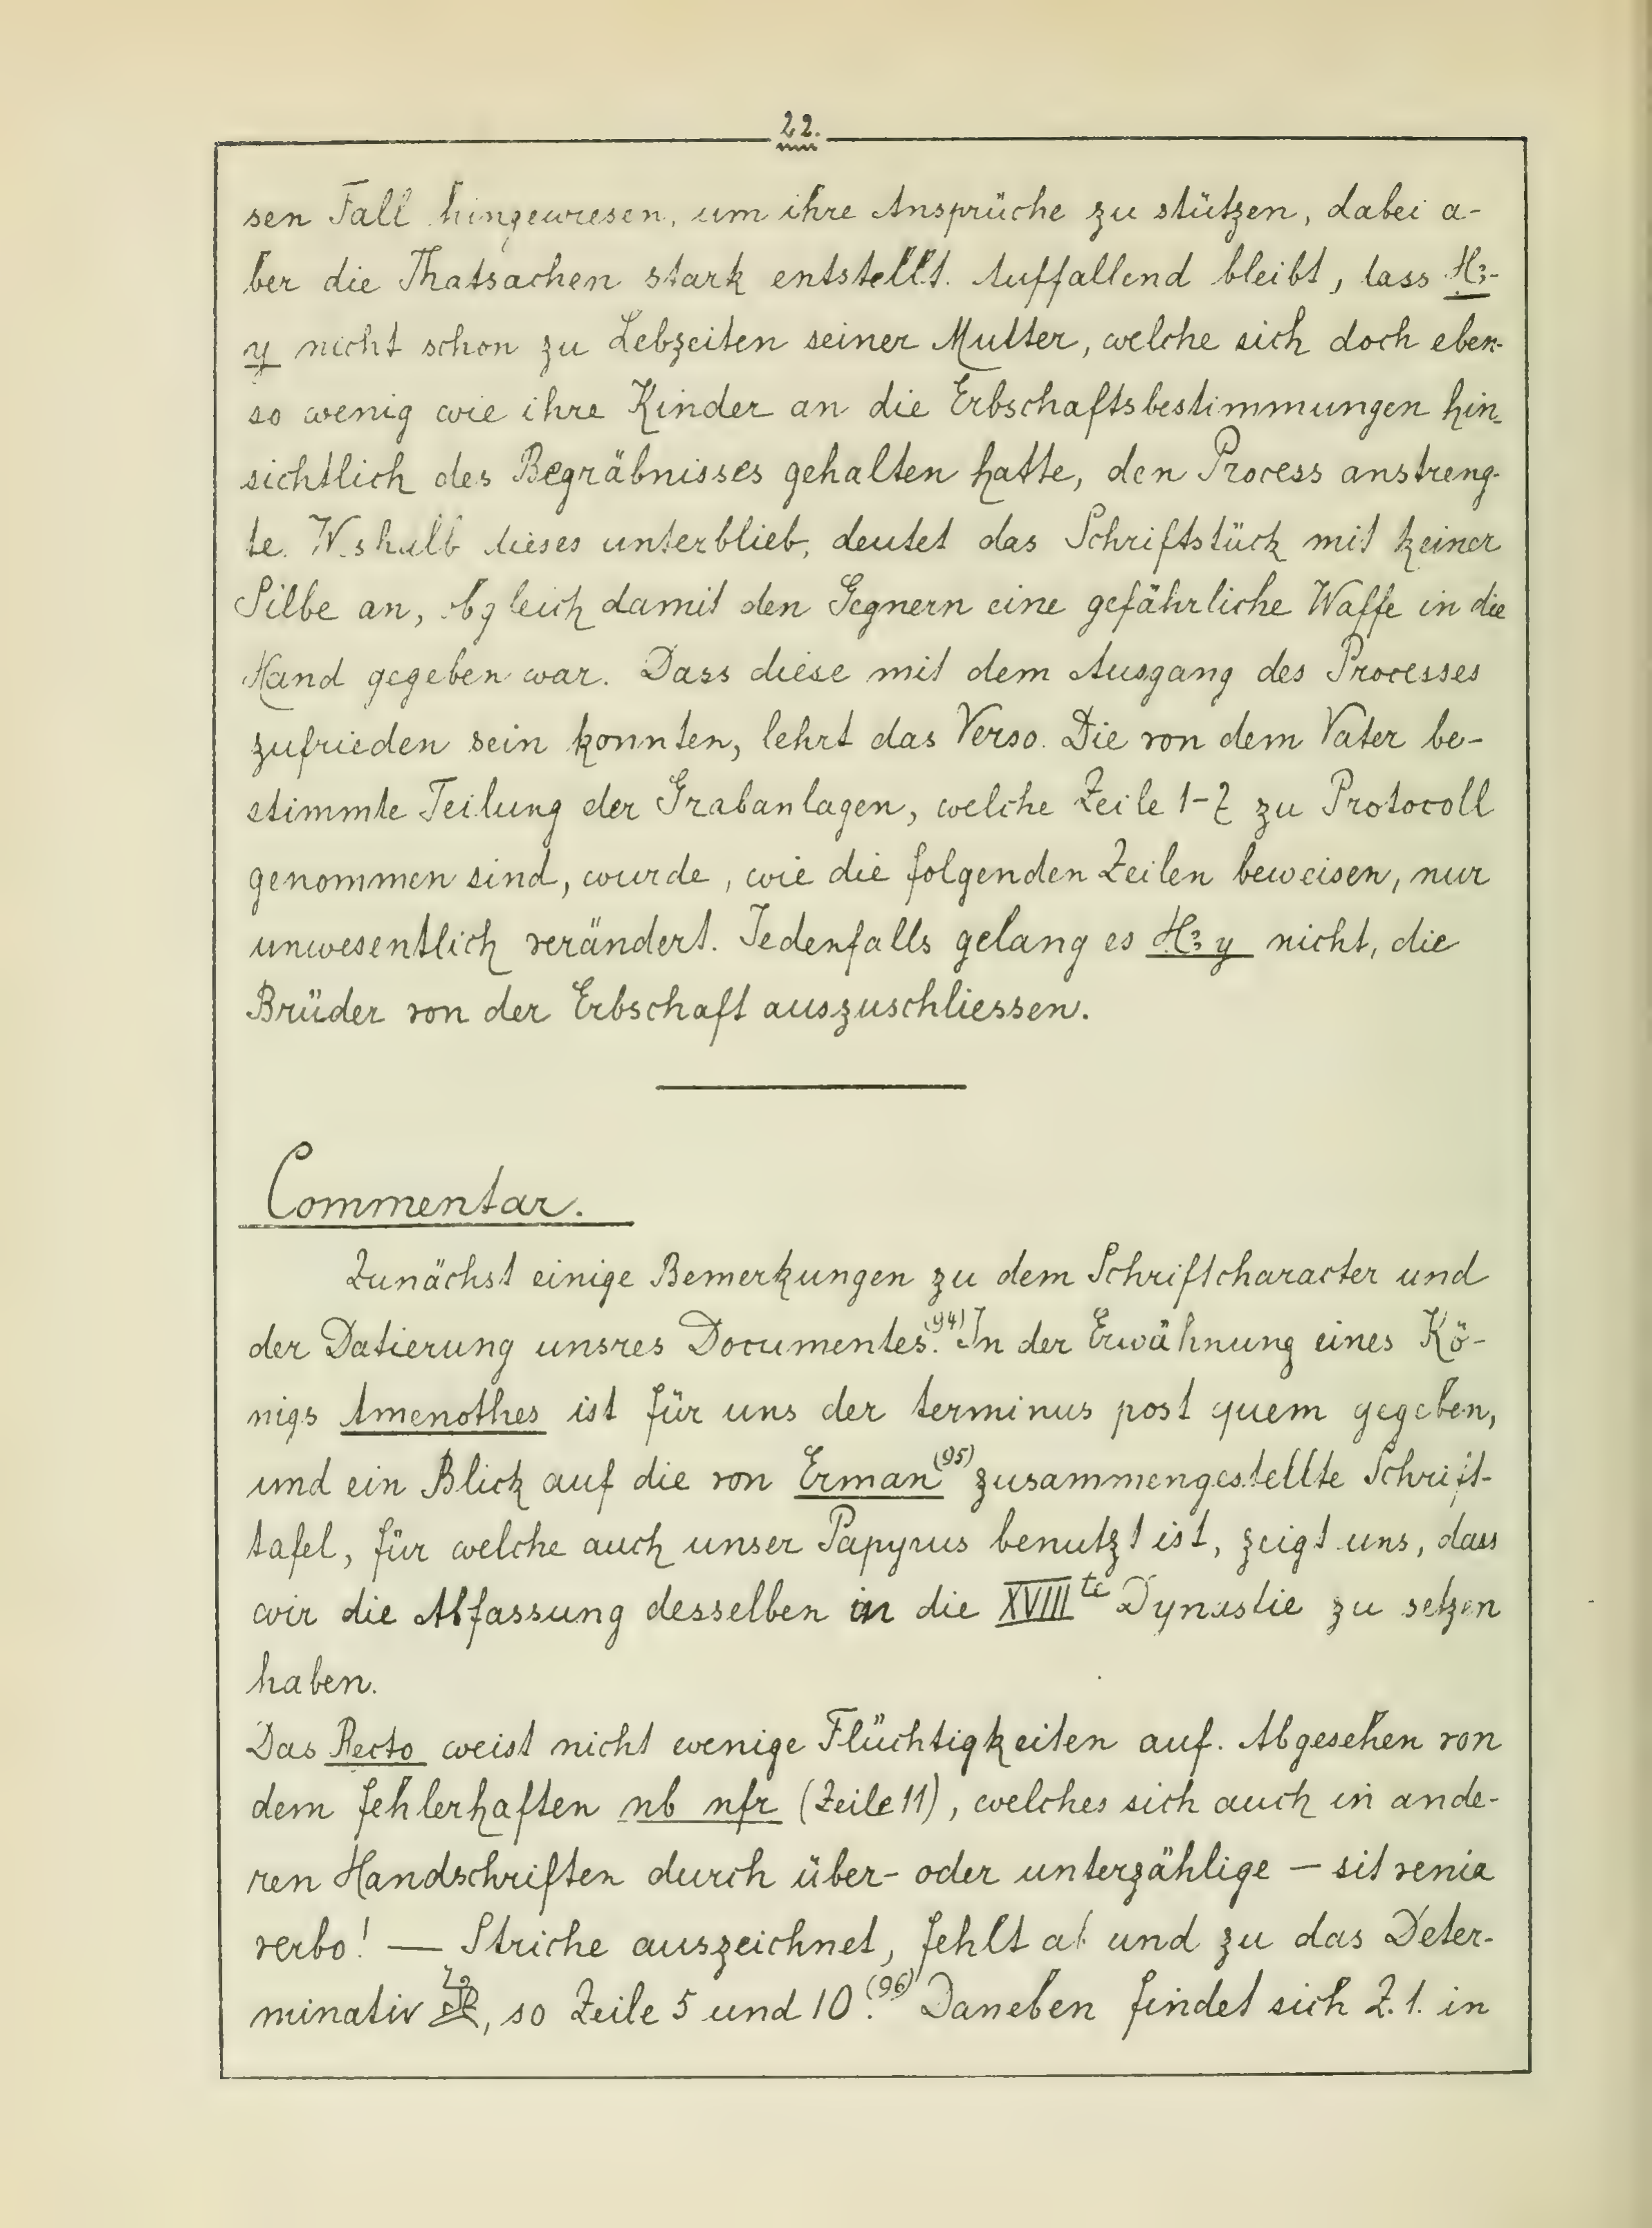 22.
sen Fall hingewiesen, um ihre Ansprüche zu stützen, dabei a-
ber die Thatsachen stark entstellt. Auffallend bleibt, dass Hꜣ-
y nicht schon zu Lebzeiten seiner Mutter, welche sich doch eben-
so wenig wie ihre Kinder an die Erbschaftsbestimmungen hin-
sichtlich des Begräbnisses gehalten hatte, den Process anstreng-
te. Weshalb dieses unterblieb, deutet das Schriftstück mit keiner
Silbe an, obgleich damit den Gegnern eine gefährliche Waffe in die
Hand gegeben war. Dass diese mit dem Ausgang des Processes
zufrieden sein konnten, lehrt das Verso. Die von dem Vater be-
stimmte Teilung der Grabanlagen, welche Zeile 1-7 zu Protocoll
genommen sind, wurde, wie die folgenden Zeilen beweisen, nur
unwesentlich verändert. Jedenfalls gelang es Hꜣy nicht, die
Brüder von der Erbschaft auszuschliessen.
Commentar.
Zunächst einige Bemerkungen zu dem Schriftcharacter und
der Datierung unsres Documentes.(94) In der Erwähnung eines Kö-
nigs Amenothes ist für uns der terminus post quem gegeben,
und ein Blick auf die von Erman(95) zusammengestellte Schrift-
tafel, für welche auch unser Papyrus benutzt ist, zeigt uns, dass
wir die Abfassung desselben in die XVIIIte Dynastie zu setzen
haben.
Das Recto weist nicht wenige Flüchtigkeiten auf. Abgesehen von
dem fehlerhaften nb nfr (Zeile 11), welches sich auch in ande-
ren Handschriften durch über- oder unterzählige — sit venia
verbo! — Striche auszeichnet, fehlt ab und zu das Deter-
minativ , so Zeile 5 und 10.(96) Daneben findet sich Z. 1. in